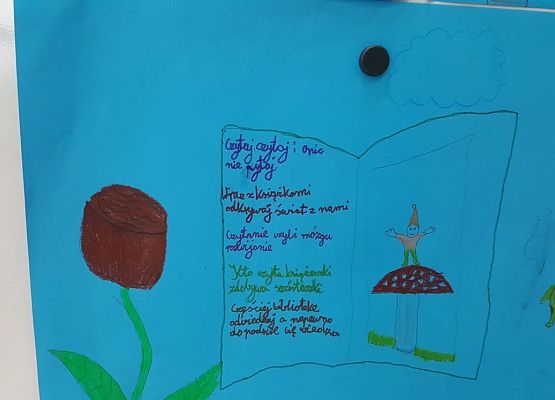 Czytaj czytaj i onic
nie pytaj.
Wraz z książkami
odkrywaj świat z nami
Czytanie czyli mózgu
rozwijanie
Kto czyta książeczki
zdobywa szósteczki
Częściej bibliotekę
odwiedzaj a napewno
do podróż cię wiedza